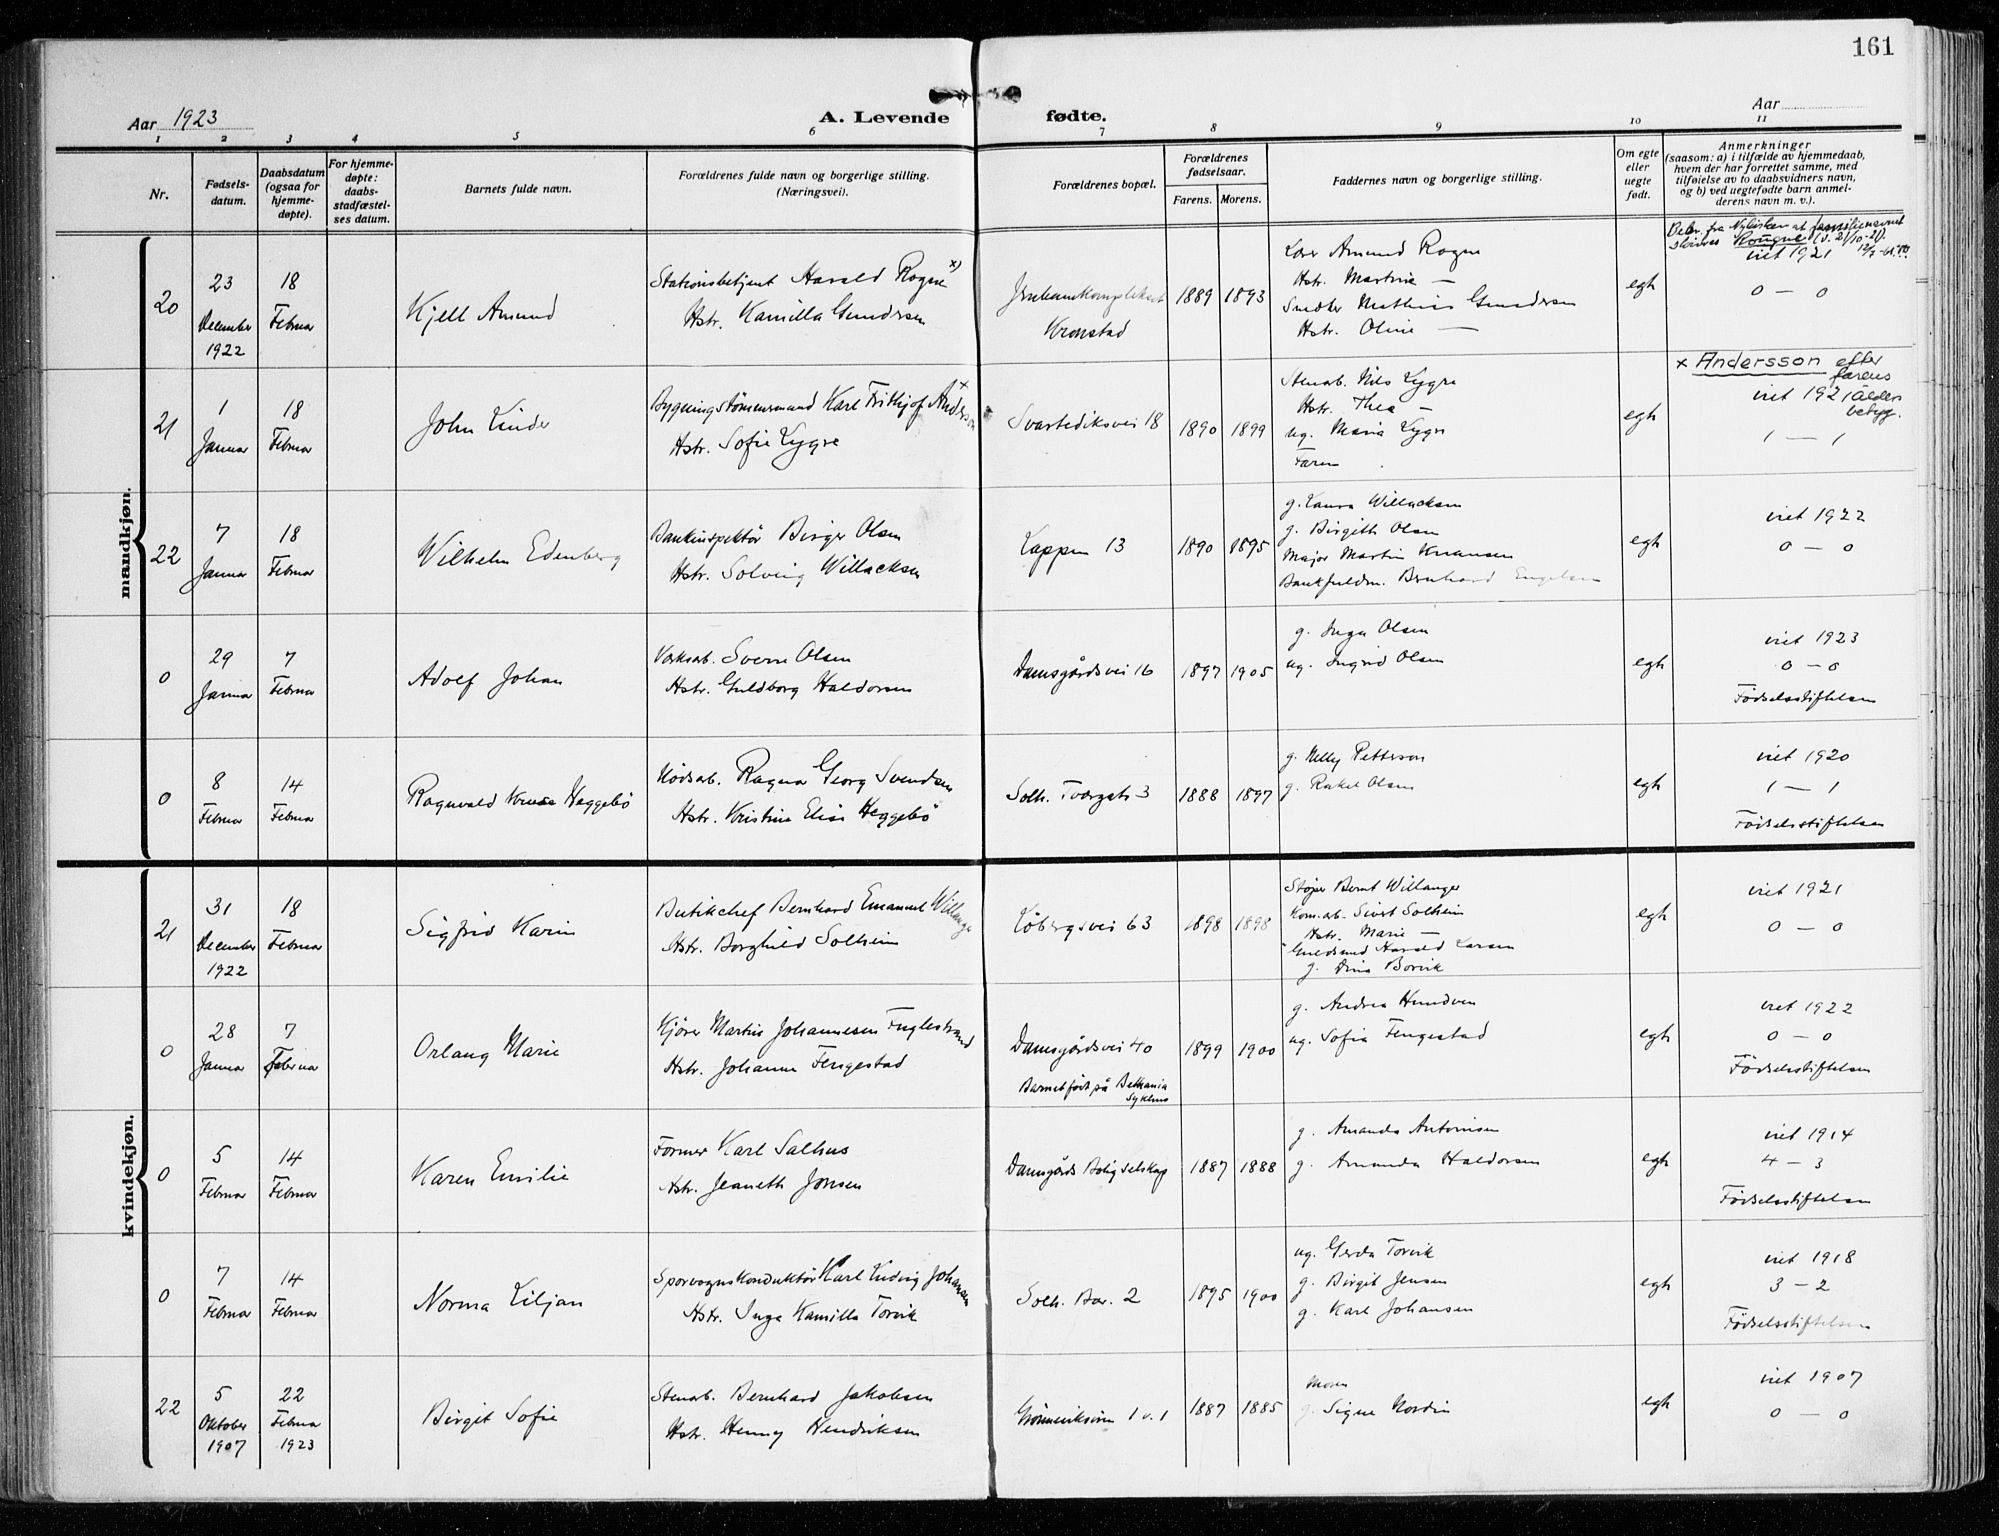 161
Aar 1923
A. Levende fødte.
Aar
1 2 3 4 5 6 7 8 9 10 11
Nr.
Fødsels-
datum.
Daabsdatum
(ogsaa for
hjemme-
døpte).
For hjemme-
døpte:
daabs-
stadfæstel-
ses datum.
Barnets fulde navn.
Forældrenes fulde navn og borgerlige stilling.
(Næringsvei).
Forældrenes bopæl.
Forældrenes
fødselsaar.
Farens. Morens.
Faddernes navn og borgerlige stilling.
Om egte
eller
uegte
født.
Anmerkninger
(saasom: a) i tilfælde av hjemmedaab,
hvem der har forrettet samme, med
tilføielse av to daabsvidners navn,
og b) ved uegtefødte barn anmel-
derens navn m. v.).
mandkjøn.
20
23
December
1922
18
Februar
Kjell Amund
Stationsbetjent Harald Rogne x)
Hstr. Kamilla Gundersen
Kronstad
1889 1893
Lærer Amund Rogne
Hstr. Martine —
Snedker Mathias Gundersen
Hstr. Oline —
egte
at familienavnet
skrives Rougne
viet 1921
0 — 0
21
1
Januar
18
Februar
John Linder
Bygningstømmermand Karl Frithjof Andersson x
Hstr. Sofie Lygre
Svartediksvei 18
1890 1899
Stenarb. Nils Lygre
Hstr. Thea —
ug. Maria Lygre
Faren
egte
x Andersson efter
farens
viet 1921
1 — 1
22
7
Januar
18
Februar
Wilhelm Edenberg
Bankinspektör Birger Olsen
Hstr. Solveig Willacksen
Lappen 13
1890 1895
g. Laura Willacksen
g. Birgith Olsen
Major Martin Knansen
Bankfuldm. Bernhard Engelsen
egte
viet 1922
0 — 0
0
29
Januar
7
Februar
Adolf Johan
Værksarb. Sverre Olsen
Hstr. Guldborg Haldorsen
Damsgårdsvei 16
1897 1905
g. Inga Olsen
ug. Ingrid Olsen
egte
viet 1923
0 — 0
Fødselsstiftelsen
0
8
Februar
14
Februar
Ragnvald Kruse Heggebö
Nödsarb. Ragnar Georg Svendsen
Hstr. Kristine Elise Heggebö
Solh. Tværgate 3
1888 1897
g. Nelly Petterson
g. Rakel Olsen
egte
viet 1920
1 — 1
Fødselsstiftelsen
kvindekjøn.
21
31
December
1922
18
Februar
Sigfrid Karin
Butikchef Bernhard Emanuel Willanger
Hstr. Borghild Solheim
Løbergsvei 63
1898 1898
Støper Bernt Willanger
Kom.arb. Sivert Solheim
Hstr. Marie —
Guldsmed Harald Larsen
g. Dina Borvik
egte
viet 1921
0 — 0
0
28
Januar
7
Februar
Orlaug Marie
Kjører Martin Johannesen Fuglestrand
Hstr. Johanne Fengestad
Damsgårdsvei 40
Barnet født på Bethania
Sykehus
1899 1900
g. Andrea Hundven
ug. Sofia Fengestad
egte
viet 1922
0 — 0
Fødselsstiftelsen
0
5
Februar
14
Februar
Karen Emilie
Former Karl Salhus
Hstr. Jeaneth Jonsen
Damsgårds Boligselskap
1887 1888
g. Amanda Antonisen
g. Amanda Haldorsen
egte
viet 1914
4 — 3
Fødselsstiftelsen
0
7
Februar
14
Februar
Norma Liljan
Sporvognskonduktør Karl Ludvig Johansen
Hstr. Inga Kamilla Torvik
Solh. Bar. 2
1895 1900
ug. Gerda Torvik
g. Birgit Jensen
g. Karl Johansen
egte
viet 1918
3 — 2
Fødselsstiftelsen
22
5
Oktober
1907
22
Februar
1923
Birgit Sofie
Stenarb. Bernhard Jakobsen
Hstr. Henny Hendriksen
1887 1885
Moren
g. Signe Nordin
egte
viet 1907
0 — 0